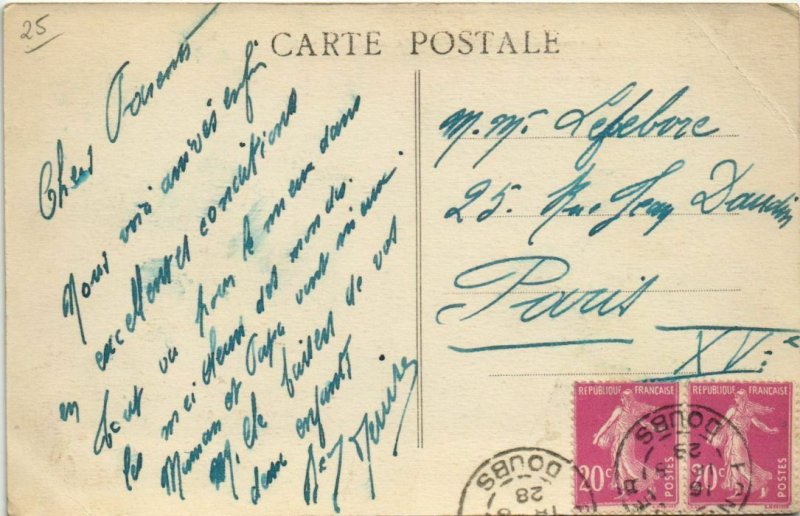 25
CARTE POSTALE
Chers Parents
Nous voici arrivés enfin
en excellentes conditions
tout va pour le mieux dans
le meilleur des mondes.
Maman et Papa vont mieux.
Mille baisers de vos
deux enfants
M. Mme Lefebvre
25. Rue Jean Daudin
Paris
XVe
REPUBLIQUE FRANÇAISE
20c
POSTES
REPUBLIQUE FRANÇAISE
20c
POSTES
DOUBS
28
DOUBS
28